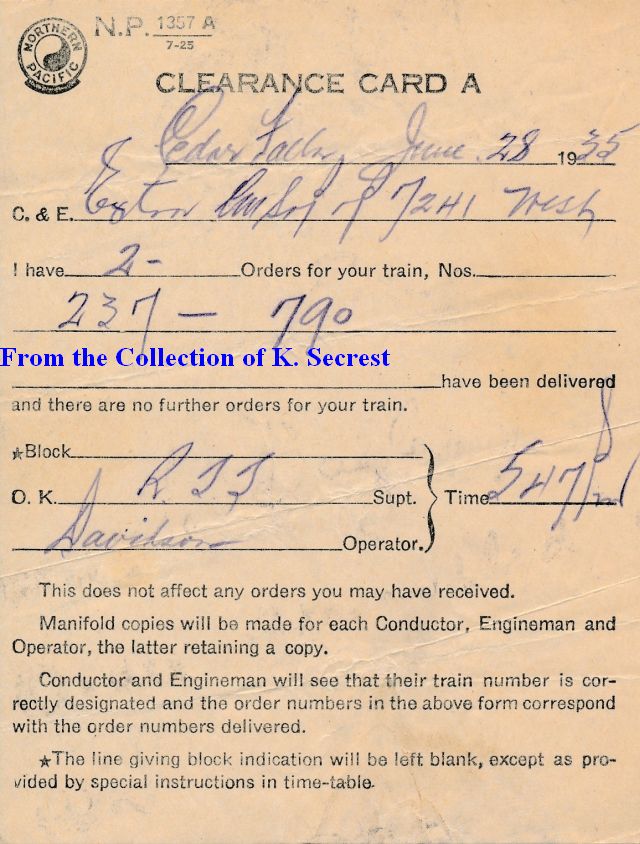 NORTHERN PACIFIC
N.P. 1357 A
7-25
CLEARANCE CARD A
Cedar Falls, June 28 1935
C. & E. Extra of 7241 West
I have 2- Orders for your train, Nos.
237 — 790
From the Collection of K. Secrest
have been delivered
and there are no further orders for your train.
★Block
O. K. Supt.
Time 547 PM
Davidson Operator.
This does not affect any orders you may have received.
Manifold copies will be made for each Conductor, Engineman and
Operator, the latter retaining a copy.
Conductor and Engineman will see that their train number is cor-
rectly designated and the order numbers in the above form correspond
with the order numbers delivered.
★The line giving block indication will be left blank, except as pro-
vided by special instructions in time-table.